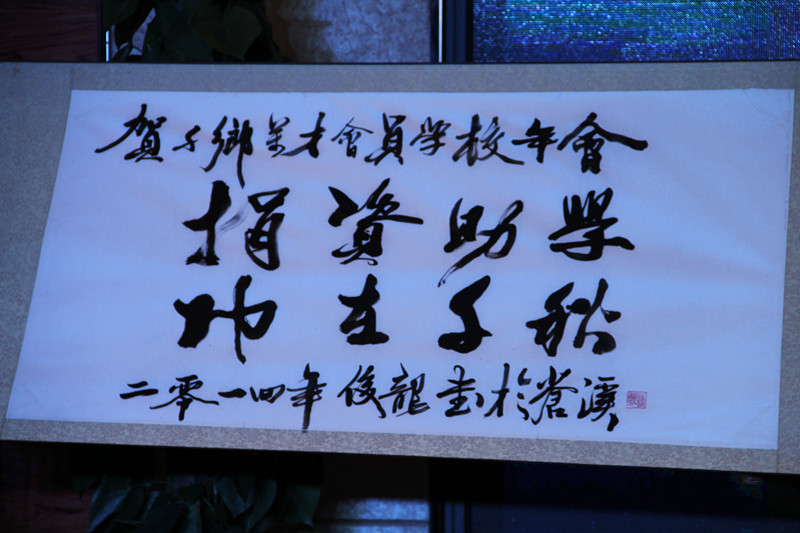 賀千鄉萬才會員学校年會
捐資助學
功在千秋
二零一四年俊龍书於蒼溪